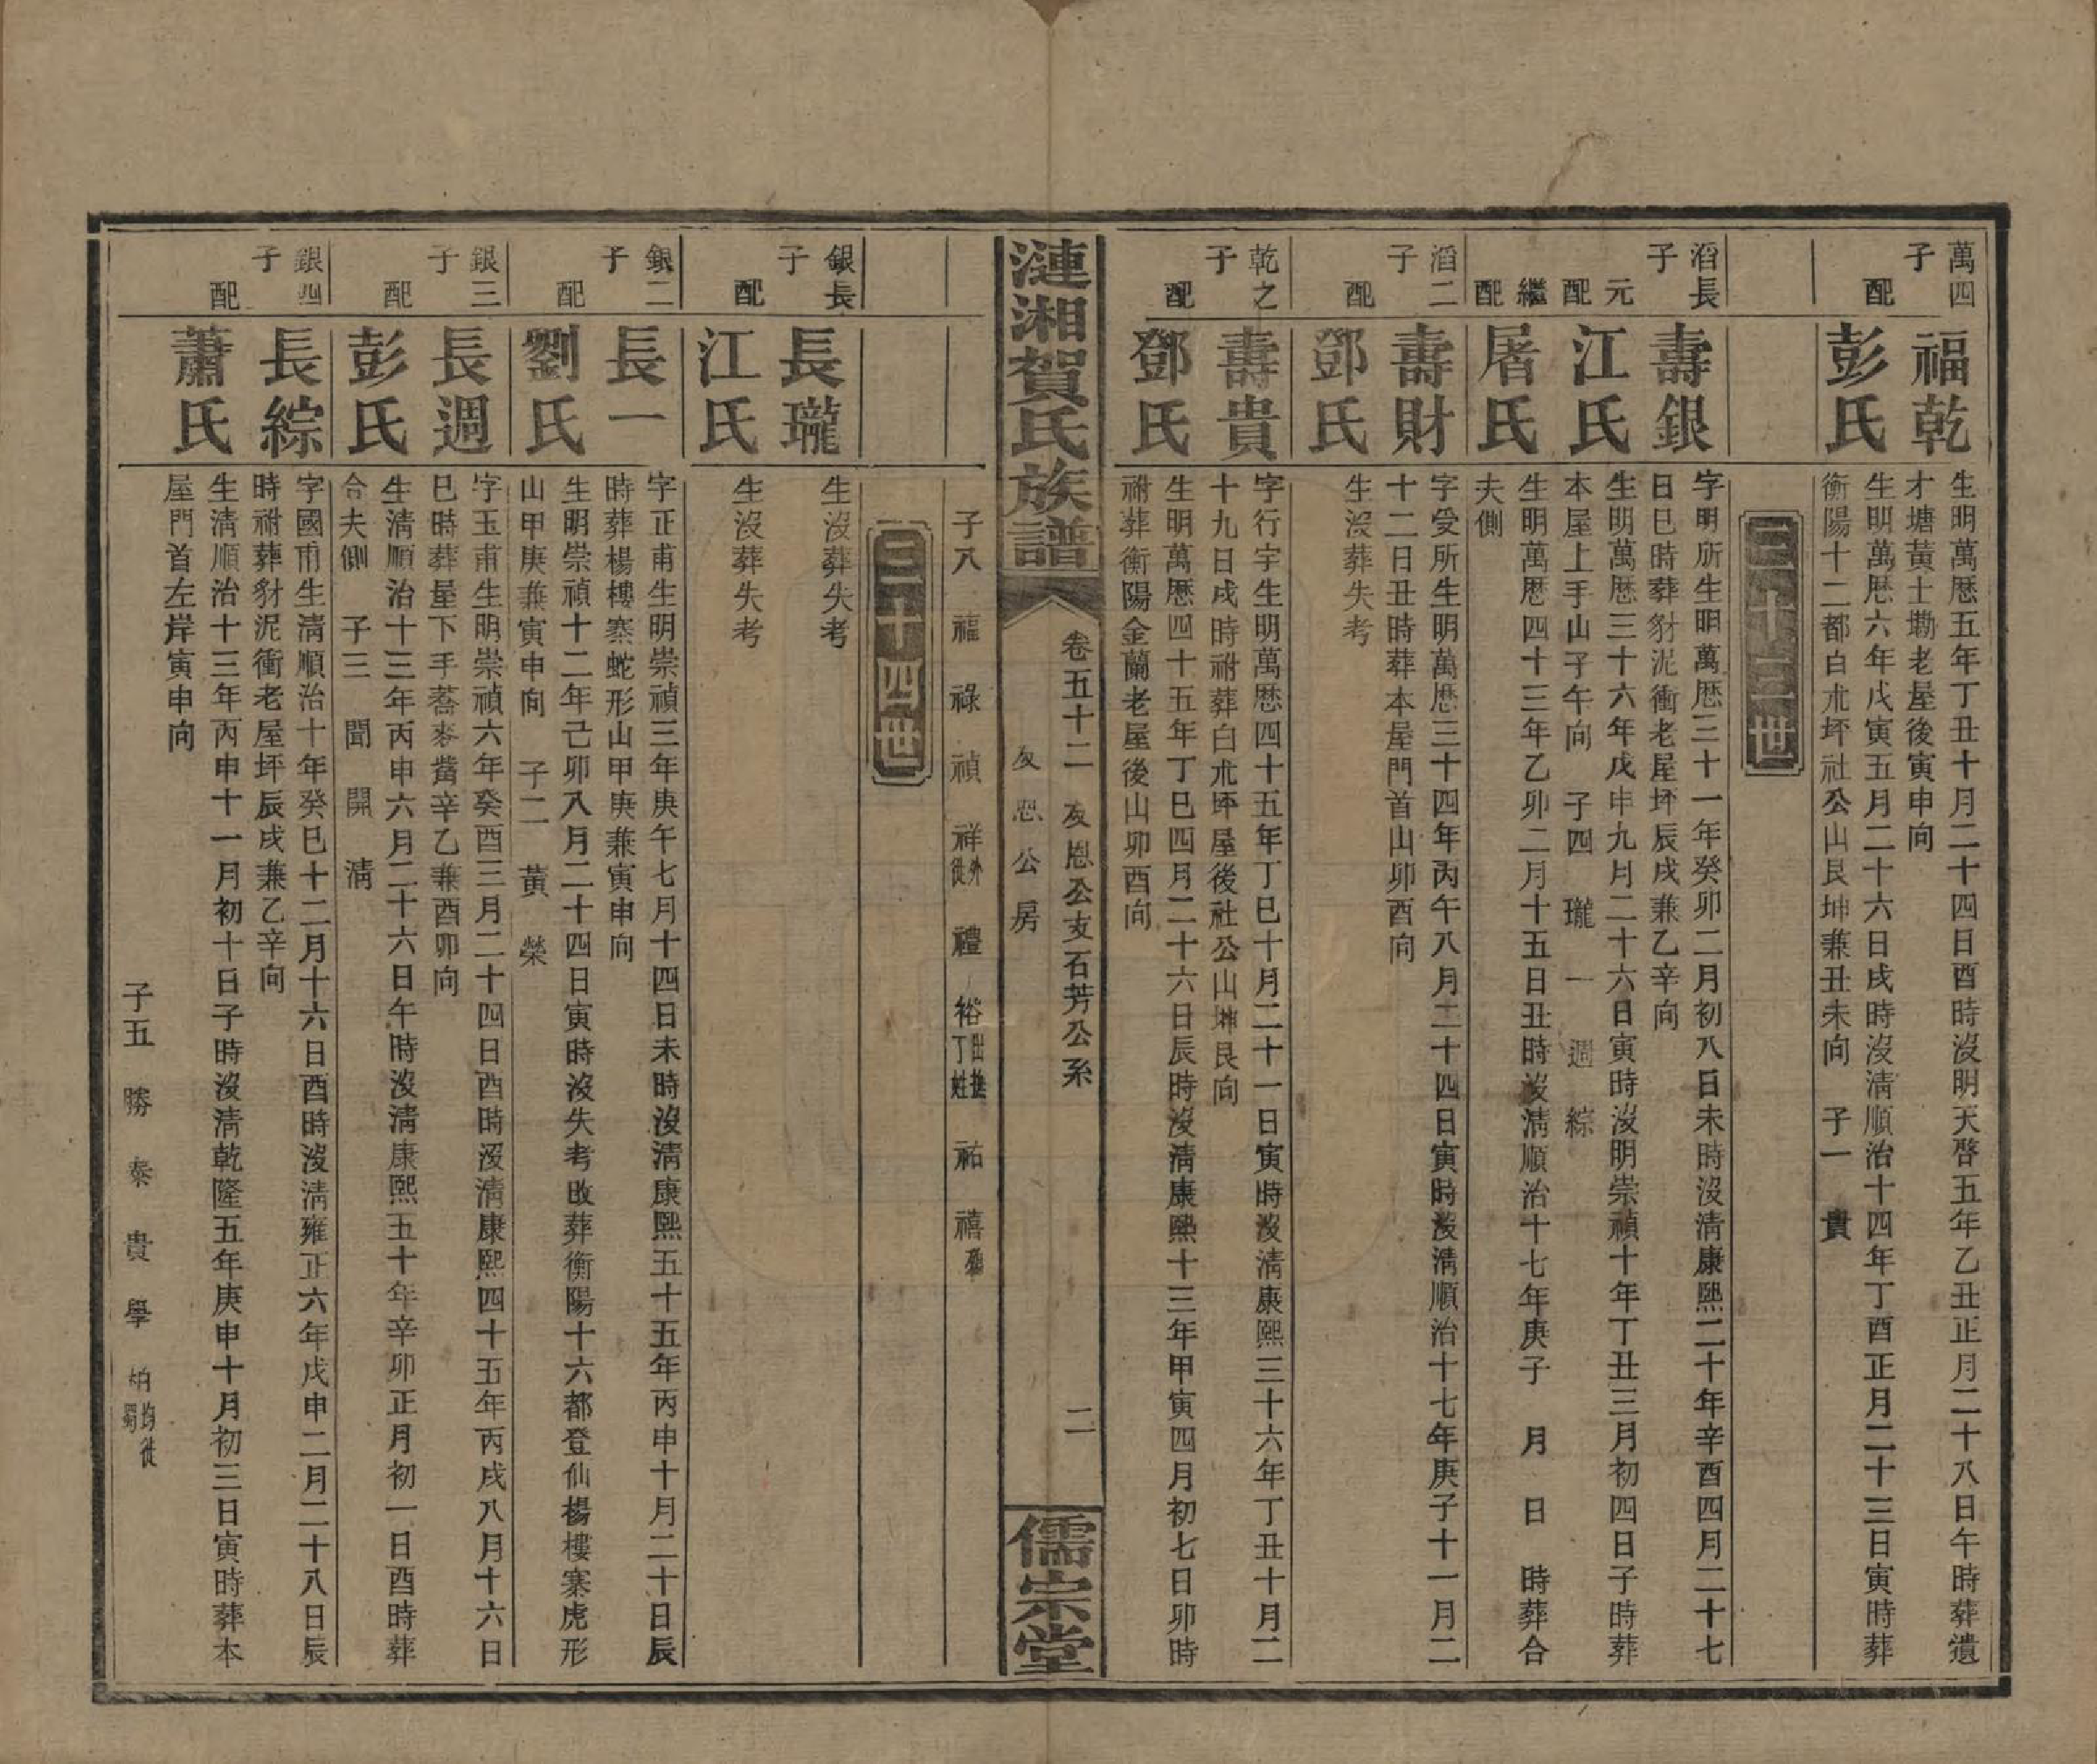 萬四
子
福乾
生明萬厯五年丁丑十月二十四日酉時沒明天啓五年乙丑正月二十八日午時葬遺
才塘黃土墈老屋後寅申向
配
彭氏
生明萬厯六年戊寅五月二十六日戌時沒淸順治十四年丁酉正月二十三日寅時葬
衡陽十二都白朮坪社公山艮坤兼丑未向 子一 貴
三十三世
滔長
子
壽銀
字明所生明萬厯三十一年癸卯二月初八日未時沒淸康熙二十年辛酉四月二十七
日巳時葬豺泥衝老屋坪辰戌兼乙辛向
元
配
江氏
生明萬厯三十六年戊申九月二十六日寅時沒明崇禎十年丁丑三月初四日子時葬
本屋上手山子午向 子四 瓏 一 週 綜
繼
配
屠氏
生明萬厯四十三年乙卯二月十五日丑時沒淸順治十七年庚子 月 日 時葬合
夫側
滔二
子
壽財
字受所生明萬厯三十四年丙午八月二十四日寅時沒淸順治十七年庚子十一月二
十二日丑時葬本屋門首山卯酉向
配
鄧氏
生沒葬失考
乾之
子
壽貴
字行宇生明萬厯四十五年丁巳十月二十一日寅時沒淸康熙三十六年丁丑十月二
十九日戌時祔葬白朮坪屋後社公山坤艮向
配
鄧氏
生明萬厯四十五年丁巳四月二十六日辰時沒淸康熙十三年甲寅四月初七日卯時
祔葬衡陽金蘭老屋後山卯酉向
漣湘賀氏族譜
卷五十二 友恩公支石芳公系
友恩公房
二
儒宗堂
子八 福 祿 禎 祥外徙 禮 裕出撫丁姓 祐 禧
三十四世
銀長
子
長瓏
生沒葬失考
配
江氏
生沒葬失考
銀二
子
長一
字正甫生明崇禎三年庚午七月十四日未時沒淸康熙五十五年丙申十月二十日辰
時葬楊樓寨蛇形山甲庚兼寅申向
配
劉氏
生明崇禎十二年己卯八月二十四日寅時沒失考改葬衡陽十六都登仙楊樓寨虎形
山甲庚兼寅申向 子二 黃 榮
銀三
子
長週
字玉甫生明崇禎六年癸酉三月二十四日酉時沒淸康熙四十五年丙戌八月十六日
巳時葬屋下手蕎麥嘴辛乙兼酉卯向
配
彭氏
生淸順治十三年丙申六月二十六日午時沒淸康熙五十年辛卯正月初一日酉時葬
合夫側 子三 聞 開 淸
銀四
子
長綜
字國甫生淸順治十年癸巳十二月十六日酉時沒淸雍正六年戊申二月二十八日辰
時祔葬豺泥衝老屋坪辰戌兼乙辛向
配
蕭氏
生淸順治十三年丙申十一月初十日子時沒淸乾隆五年庚申十月初三日寅時葬本
屋門首左岸寅申向
子五 勝 泰 貴 學 相均徙蜀